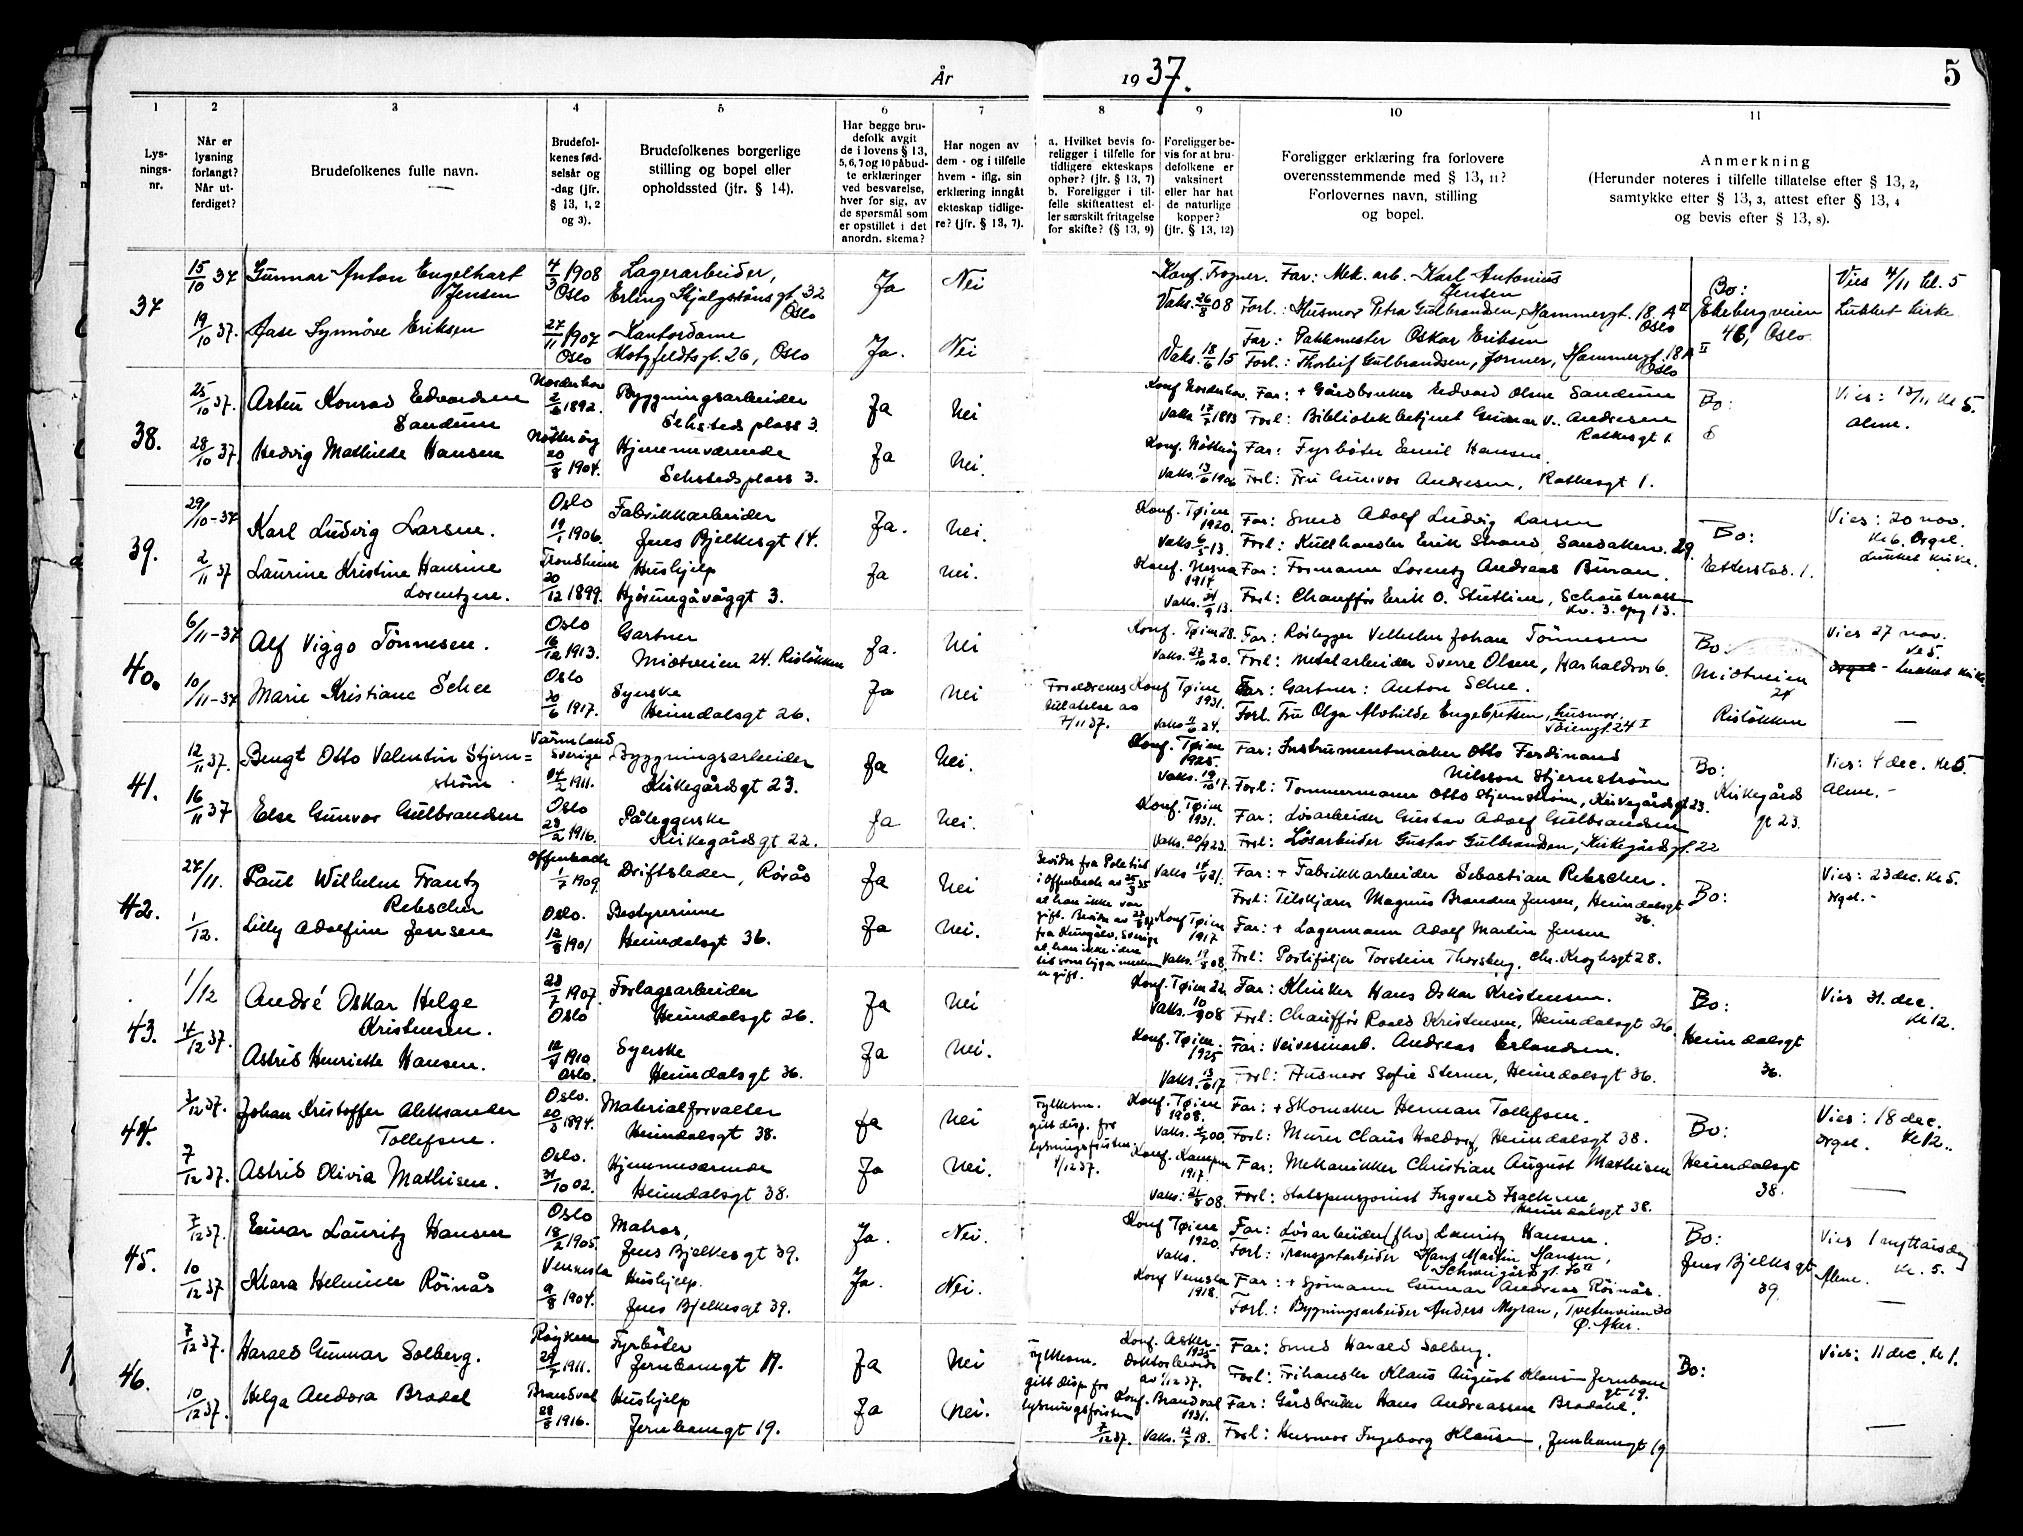 År
1937.
5
1
2
3
4
5
6
7
8
9
10
11
Lys-
nings-
nr.
Når er
lysning
forlangt?
Når ut-
ferdiget?
Brudefolkenes fulle navn.
Brudefol-
kenes fød-
selsår og
-dag (jfr.
§ 13, 1, 2
og 3).
Brudefolkenes borgerlige
stilling og bopel eller
opholdssted (jfr. § 14).
Har begge bru-
defolk avgit
de i lovens § 13,
5, 6, 7 og 10 påbud-
te erklæringer
ved besvarelse,
hver for sig, av
de spørsmål som
er opstillet i det
anordn. skema?
Har nogen av
dem - og i tilfelle
hvem - iflg. sin
erklæring inngått
ekteskap tidlige-
re? (jfr. § 13, 7).
a. Hvilket bevis fo-
religger i tilfelle for
tidligere ekteskaps
ophør? (jfr. § 13, 7)
b. Foreligger i til-
felle skifteattest el-
ler særskilt fritagelse
for skifte? (§ 13, 9)
Foreligger be-
vis for at bru-
defolkene er
vaksinert
eller har hat
de naturlige
kopper?
(jfr. § 13, 12)
Foreligger erklæring fra forlovere
overensstemmende med § 13, 11?
Forlovernes navn, stilling
og bopel.
Anmerkning
(Herunder noteres i tilfelle tillatelse efter § 13, 2,
samtykke efter § 13, 3, attest efter § 13, 4
og bevis efter § 13, 8).
37
15/10 37
Gunnar Anton Engelhart
Jensen
4/3 1908
Oslo
Lagerarbeider,
Erling Skjalgssønsgt. 32
Oslo
Ja
Nei
Konf. Frogner. Far: Mek. arb. Karl Antonius
Jensen
Vaks. 26/8 08 Forl.: Husmor Petra Gulbrandsen, Hammergt. 18 A II
Oslo
Bo:
Ekebergveien
46, Oslo
Vies 4/11 kl. 5
Lukket kirke
19/10 37.
Aase Synnöve Eriksen
27/11 1907
Oslo
Kontordame
Motzfeldtsgt. 26, Oslo
Ja.
Nei
Far: Pakkmester Oskar Eriksen
Vaks. 18/6 15 Forl.: Thorleif Gulbrandsen, former, Hammergt. 18 A II
Oslo
38.
25/10 37.
Artur Konrad Edvardsen
Sandum
Norderhov
2/6 1892.
Byggningsarbeider
Sehsteds plass 3.
Ja
Nei
Konf Norderhov. Far: + Gårdbruker Edvard Olsen Sandum
Vaks 17/7 1893 Forl: Bibliotekbetjent Gunnar V. Andresen
Ratkesgt 1.
Bo:
Vies: 13/11 kl 5.
alene.
28/10 37.
Hedvig Mathilde Hansen
Nötteröy
20/8 1904.
Hjemmeværende
Sehsteds plass 3.
Ja
Nei.
Konf. Nötteröy Far: Fyrböter Emil Hansen.
Vaks. 13/6 1906 Forl: Fru Gunvor Andresen, Ratkesgt 1.
39.
29/10-37
Karl Ludvig Larsen.
Oslo
19/1 1906.
Fabrikkarbeider
Jens Bjelkesgt 14.
Ja.
Nei.
Konf. Tøien
1920. Far: Smed Adolf Ludvig Larsen
Vaks. 6/5 13. Forl: Kullhandler Erik Strand, Sandaken. 29.
Bo:
Etterstad. 1.
Vies: 20 nov.
Kl 6. Orgel.
Lukket kirke.
2/11 37
Laurine Kristine Hansine
Lorentzen.
Trondheim
20/12 1899.
Hushjelp
Hjörungavåggt 3.
Ja
Nei.
Konf. Nesna
1914 Far: Formann Lorentz Andreas Buran.
Vaks. 21/9 13. Forl: Chauffør Erik O. Stutlien, Schouterrass
3. opg 13.
40.
6/11-37
Alf Viggo Tönnesen.
Oslo
16/12 1913.
Gartner
Midtveien 24. Risløkken
Ja.
Nei
Konf. Tøien 28. Far: Rörlegger Vilhelm Johan Tönnesen
Vaks. 27/10 20. Forl: Metalarbeider Sverre Olsen, Harhaldsv 6.
Bo.
Midtveien
24
Risløkken
Vies 27 nov.
Kl 5.
Orgel - Lukket kirke.
10/11-37
Marie Kristiane Schee
Oslo
20/6 1917.
Syerske
Heimdalsgt 26.
Ja
Nei
Foreldrenes
tillatelse av
7/11 37.
Konf Tøien
1931. Far: Gartner: Anton Schee.
Vaks 11/6 24. Forl. Fru Olga Mathilde Engebretsen, husmor.
Töiengt. 24 I
41.
12/11 37.
Bengt Otto Valentin Stjern=
ström
Värmland
Sverige
14/2 1911.
Byggningsarbeider
Kirkegårdsgt 23.
Ja
Nei.
Konf. Tøien
1925. Far: Instrumentmaker Otto Ferdinand
Nilsson Stjernström
Vaks. 19/10 17. Forl: Tommermann Otto Stjernström, Kirkegårdsgt 23.
Bo:
Kirkegårds
gt 23.
Vies: 4 dec. kl 5.
Alene.-
16/11 37
Else Gunvor Gulbrandsen
Oslo
23/2 1916.
Påleggerske
Kirkegårdsgt 22.
Ja
Nei.
Konf. Tøien
1931. Far: Lösarbeider Gustav Adolf Gulbrandsen
Vaks. 20/9 23. Forl: Lösarbeider Gustav Gulbrandsen, Kirkegårdsgt. 22
42.
27/11.
Paul Wilhelm Frantz
Rebscher
Offenbach
1/7 1909.
Driftsleder, Rörås
Ja
Nei
Bevider fra Politiet
i Offenbach av 25/3 35
at han ikke var
gift. Bevider av
fra Kungälv, Sverige
at han ikke i den
tid som ligger mellem
er gift.
Vaks 14/5 21. Far: + Fabrikkarbeider Sebastian Rebscher.
Forl: Tilskjærer Magnus Brander Jensen, Heimdalsgt
36.
Bo:
Vies: 23 dec. Kl 5.
orgel.-
1/12.
Lilly Adolfine Jensen
Oslo.
12/8 1901
Bestyrerinne
Heimdalsgt 36.
Ja
Nei.
Konf Tøien
1917 Far: + Lagermann Adolf Martin Jensen
Vaks. 19/5 08. Forl: Postfölger Torstein Thorsberg, chr. Kroghsgt 28.
43.
1/12
André Oskar Helge
Kristensen.
23/7 1907.
Oslo
Forlagsarbeider
Heimdalsgt 26.
Ja
Nei
Konf. Tøien 22. Far: Klinker Hans Oskar Kristensen.
Vaks. 10/9 08 Forl: Chauffør Roald Kristensen, Heimdalsgt 26.
Bo:
Heimdalsgt
36.
Vies 31. dec.
Kl 12.
4/12 37.
Astrid Henriette Hansen.
12/4 1910
Oslo.
Syerske
Heimdalsgt 36.
Ja
Nei.
Konf. Tøien.
1925 Far: Veivesinarb. Andreas Erlandsen.
Vaks. 13/6 17 Forl: Husmor Sofie Sterner, Heimdalsgt 36.
44.
3/12 37.
Johan Kristoffer Aleksander
Tollefsen.
Oslo.
20/3 1894.
Materialforvalter
Heimdalsgt 38.
Ja
Nei
Fylkesm.
gitt disp. fra
lysningsfristen.
4/12 37.
Konf. Tøien
1908. Far: + Skomaker Herman Tollefsen.
Vaks. 00. Forl: Murer Claus Holdorf, Heimdalsgt 38.
Bo:
Heimdalsgt
38.
Vies: 18 dec.
orgel. Kl 12..
7/12 37.
Astrid Olivia Mathisen.
Oslo.
31/10 02.
Hjemmeværende
Heimdalsgt 38.
Ja
Nei.
Konf. Kampen
1917. Far: Mekanikker Christian August Mathisen
Vaks: 21/8 08. Forl: Statspensjonist Ingvald Isachsen
Heimdalsgt 38.
45.
7/12 37.
Einar Lauritz Hansen
Oslo
18/2 1905.
Matros,
Jens Bjelkesgt 39.
Ja.
Nei.
Konf Tøien
1920. Far: Lösarbeider (fhv) Lauritz Hansen.
Vaks. Forl: Transportarbeider Hans Martin Hansen,
Schweigårdsgt. 50 II
Bo:
Jens Bjelkesgt
39.
Vies 1 nyttårsdag
Kl. 5.
Alene.
10/12 37.
Klara Helmine Röinås
Vennesla
9/8 1904.
Hushjelp.
Jens Bjelkesgt 39.
Ja.
Nei.
Konf Vennsla
1918. Far: + Sjömann Gunnar Andreas Röinås.
Forl: Bygningsarbeider Anders Myran, Tvetenveien 30
Ø. Aker.
46.
7/12 37.
Harald Gunnar Solberg.
Röyken
29/7 1911.
Fyrböter
Jernbanegt 19.
Ja
Nei
Fylkesm.
gitt disp fra
lysningsfristen
7/12 37.
Konf. Asker
1925 Far: Smed Harald Solberg.
Doktorbevids
av 1/12 37. Forl: Frihandler Klaus August Klausen Jernbane
gt 19.
Bo:
Vies: 11 dec. Kl 1.
10/12 37.
Helga Andora Brodal
Brandval
28/8 1916.
Hushjelp
Jernbanegt 19.
Ja
Nei.
Konf. Brandval
1931. Far: Gårdbruker Hans Andreassen Brodahl.
Vaks. 12/7 18. Forl: Husmor Ingeborg Klausen, Jernbanegt 19